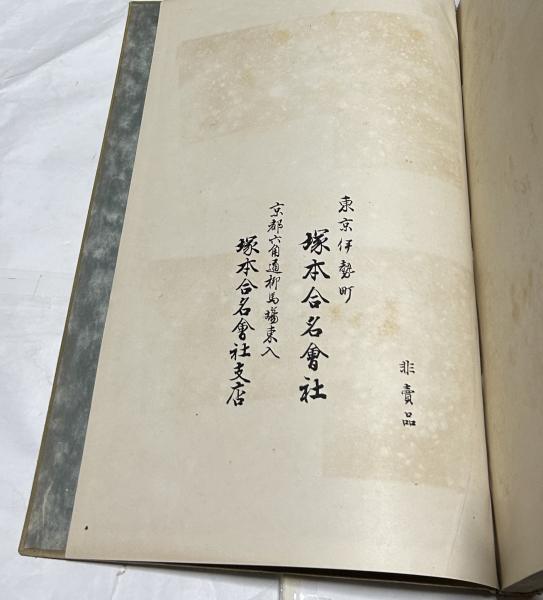 非賣品
東京伊勢町
塚本合名會社
京都六角通柳馬場東入
塚本合名會社支店